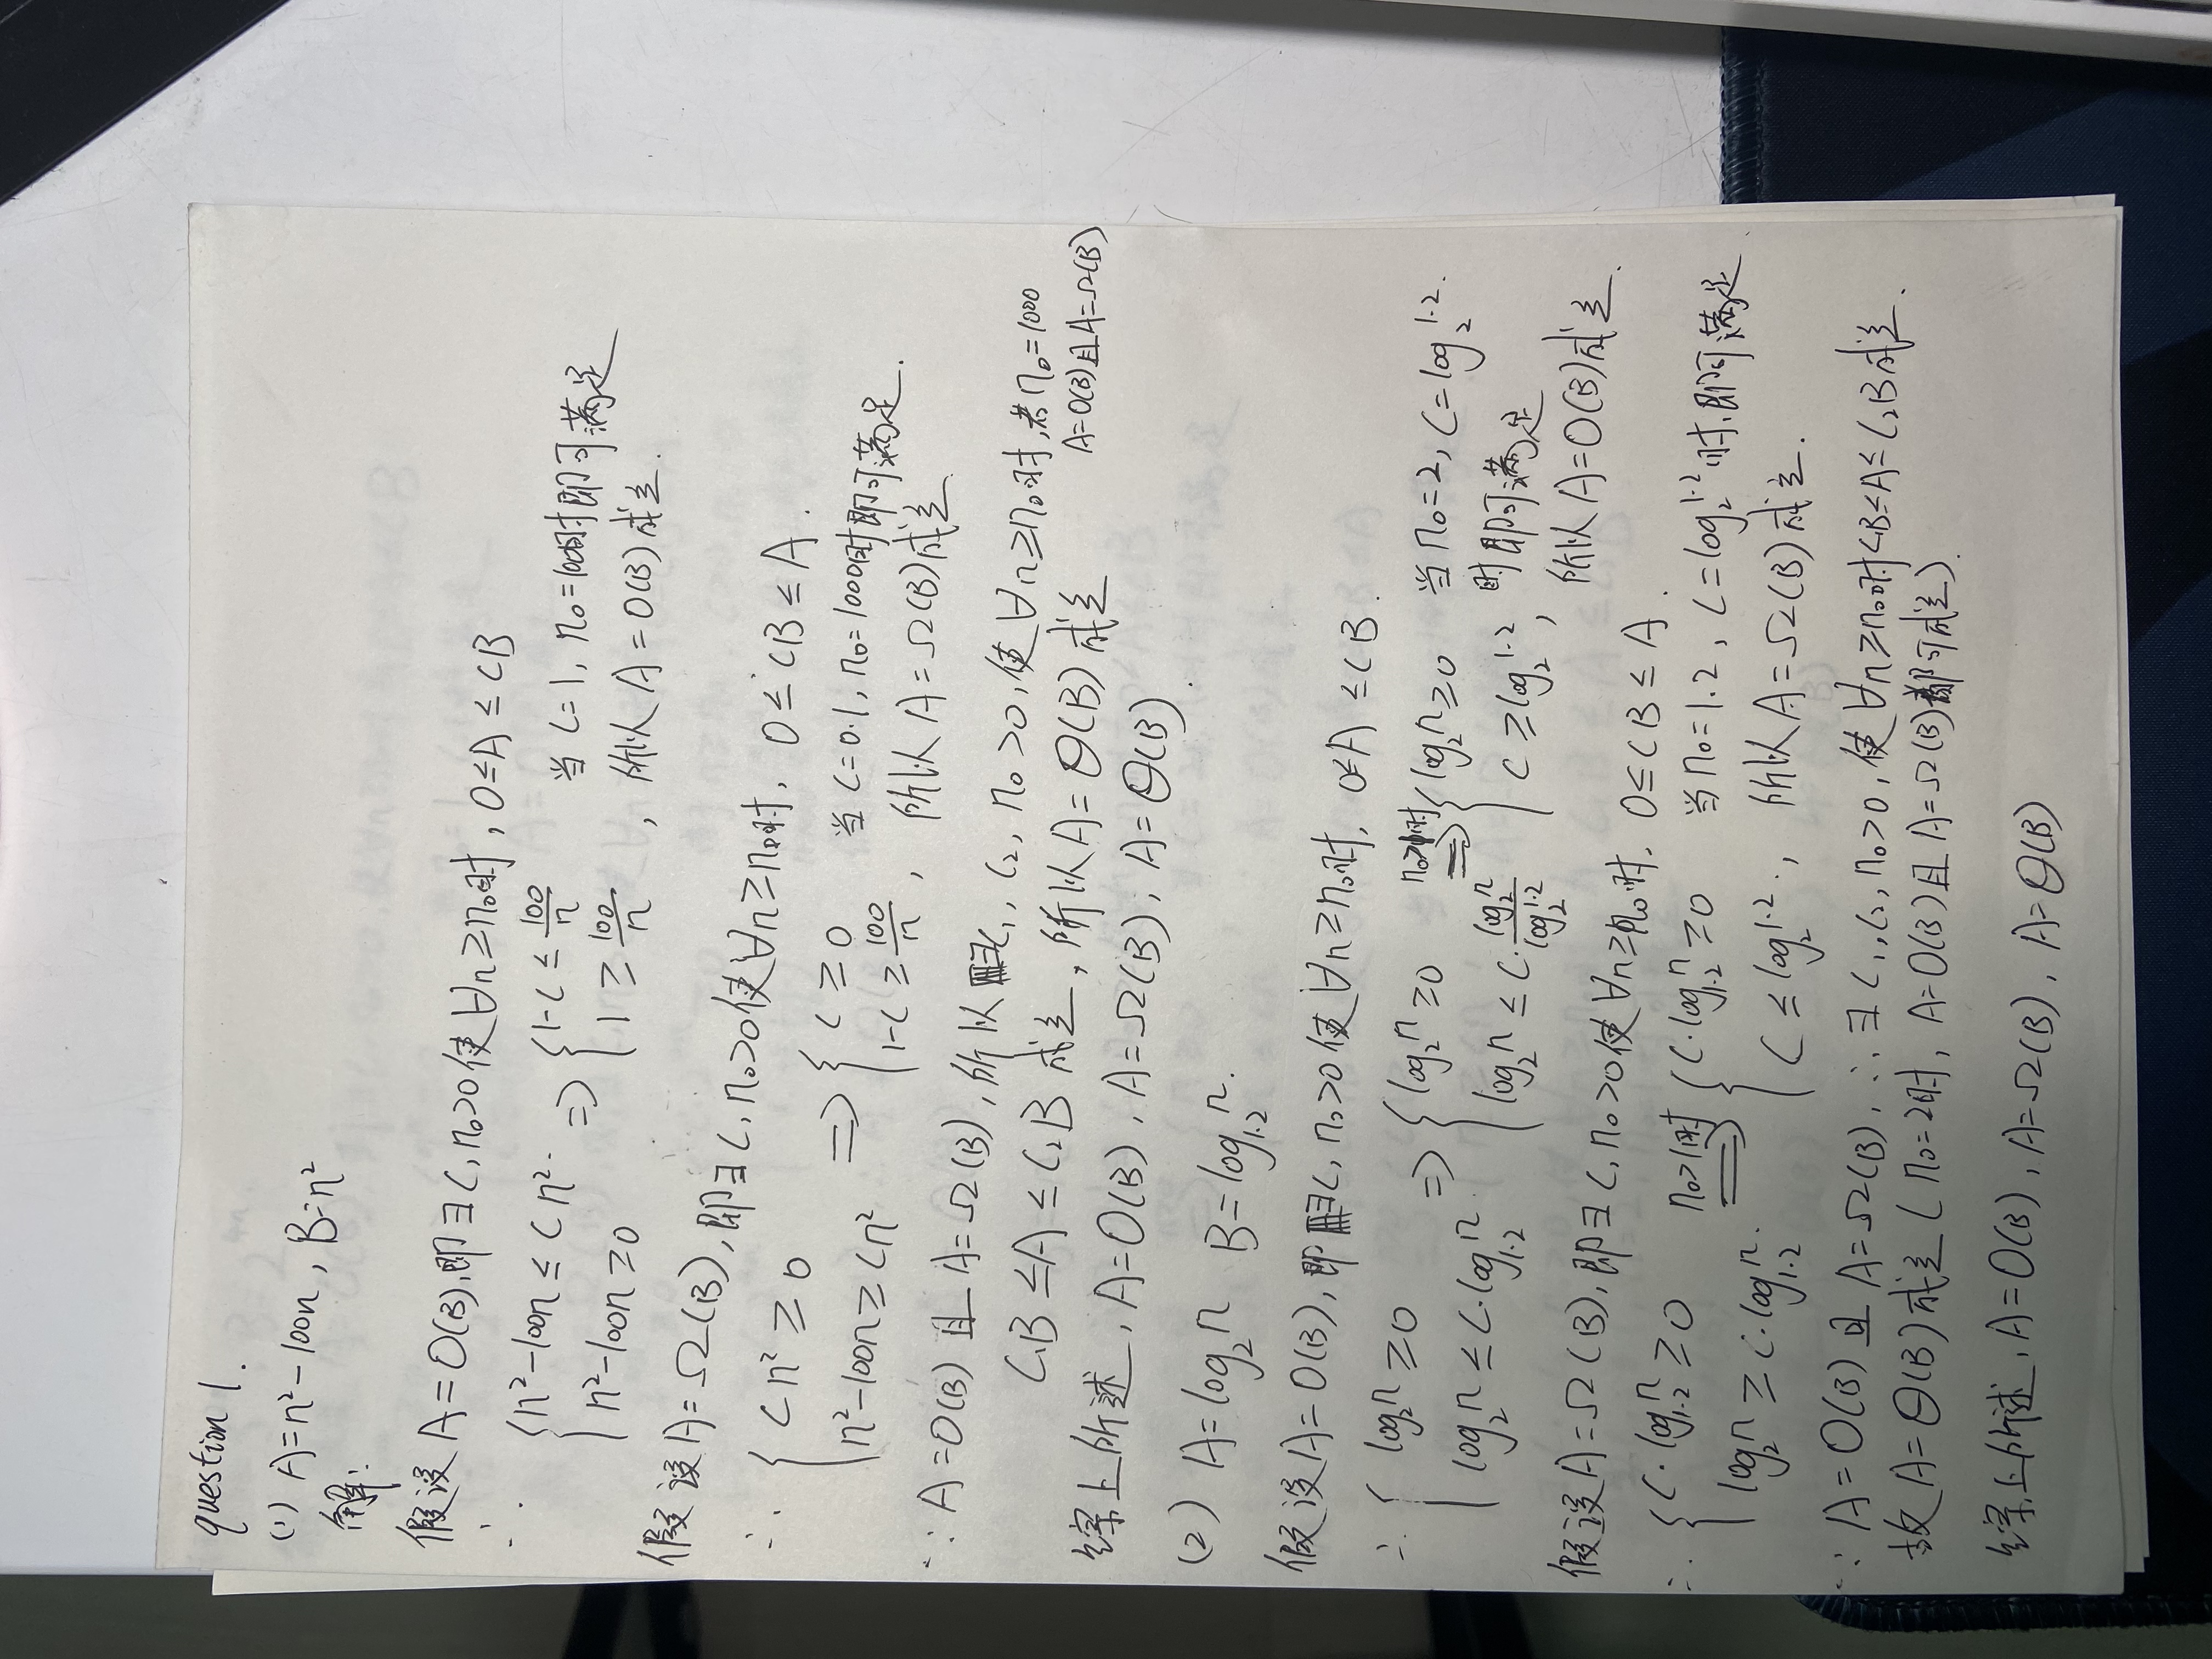 question 1.
(1) A=n²-100n, B=n²
解:
假设A=O(B),即∃C,n₀>0使∀n≥n₀时,0≤A≤CB
∴ {n²-100n≤Cn². n²-100n≥0 ⇒ {1-C≤100/n 1≥100/n, 当C=1,n₀=100时即可满足
所以A=O(B)成立.
假设A=Ω(B),即∃C,n₀>0使∀n≥n₀时,0≤CB≤A.
∴ {Cn²≥0 n²-100n≥Cn² ⇒ {C≥0 1-C≥100/n, 当C=0.1,n₀=1000时即可满足.
所以A=Ω(B)成立
∵A=O(B)且A=Ω(B),所以∃C₁,C₂,n₀>0,使∀n≥n₀时,若n₀=1000
A=O(B)且A=Ω(B)
C₁B≤A≤C₂B成立,所以A=Θ(B)成立
综上所述,A=O(B),A=Ω(B),A=Θ(B).
(2) A=log₂n B=log₁.₂n.
假设A=O(B),即∃C,n₀>0使∀n≥n₀时,0≤A≤CB.
∴ {log₂n≥0 log₂n≤C·log₁.₂n ⇒ {log₂n≥0 log₂n≤C·log₂n/log₂1.2 n₀>1时⇒ {log₂n≥0 C≥log₂1.2, 当n₀=2,C=log₂1.2.
时即可满足
所以A=O(B)成立.
假设A=Ω(B),即∃C,n₀>0使∀n≥n₀时.0≤CB≤A.
∴ {C·log₁.₂n≥0 log₂n≥C·log₁.₂n. n₀>1时⇒ {C·log₁.₂n≥0 C≤log₂1.2., 当n₀=1.2,C=log₂1.2时,即可满足
所以A=Ω(B)成立.
∵A=O(B)且A=Ω(B),∴∃C₁,C₂,n₀>0,使∀n≥n₀时C₁B≤A≤C₂B成立.
故A=Θ(B)成立(n₀=2时,A=O(B)且A=Ω(B)都可成立).
综上所述,A=O(B),A=Ω(B),A=Θ(B)